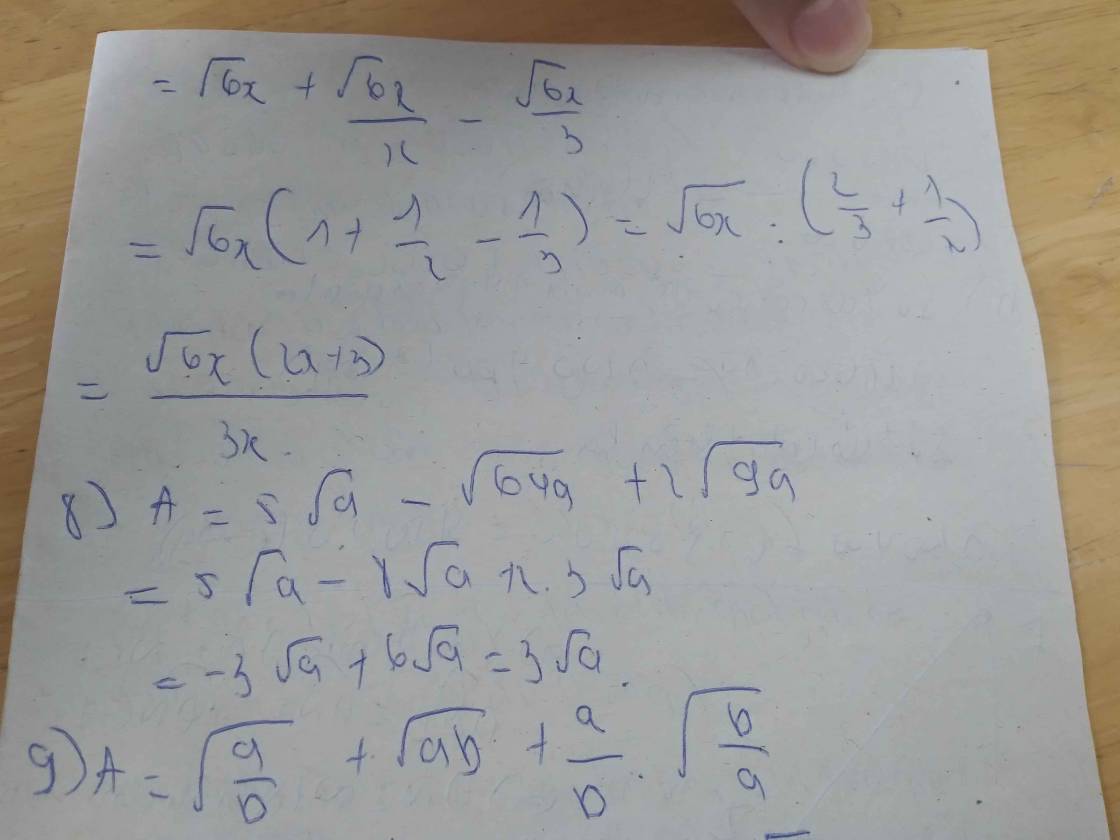 = √6x + √6x/x - √6x/3
= √6x (1 + 1/x - 1/3) = √6x . (2/3 + 1/x)
= √6x (2x+3)/3x.
8) A = 5√a - √64a + 2√9a
= 5√a - 8√a + 2.3√a
= -3√a + 6√a = 3√a.
9) A = √(a/b) + √ab + a/b . √(b/a)